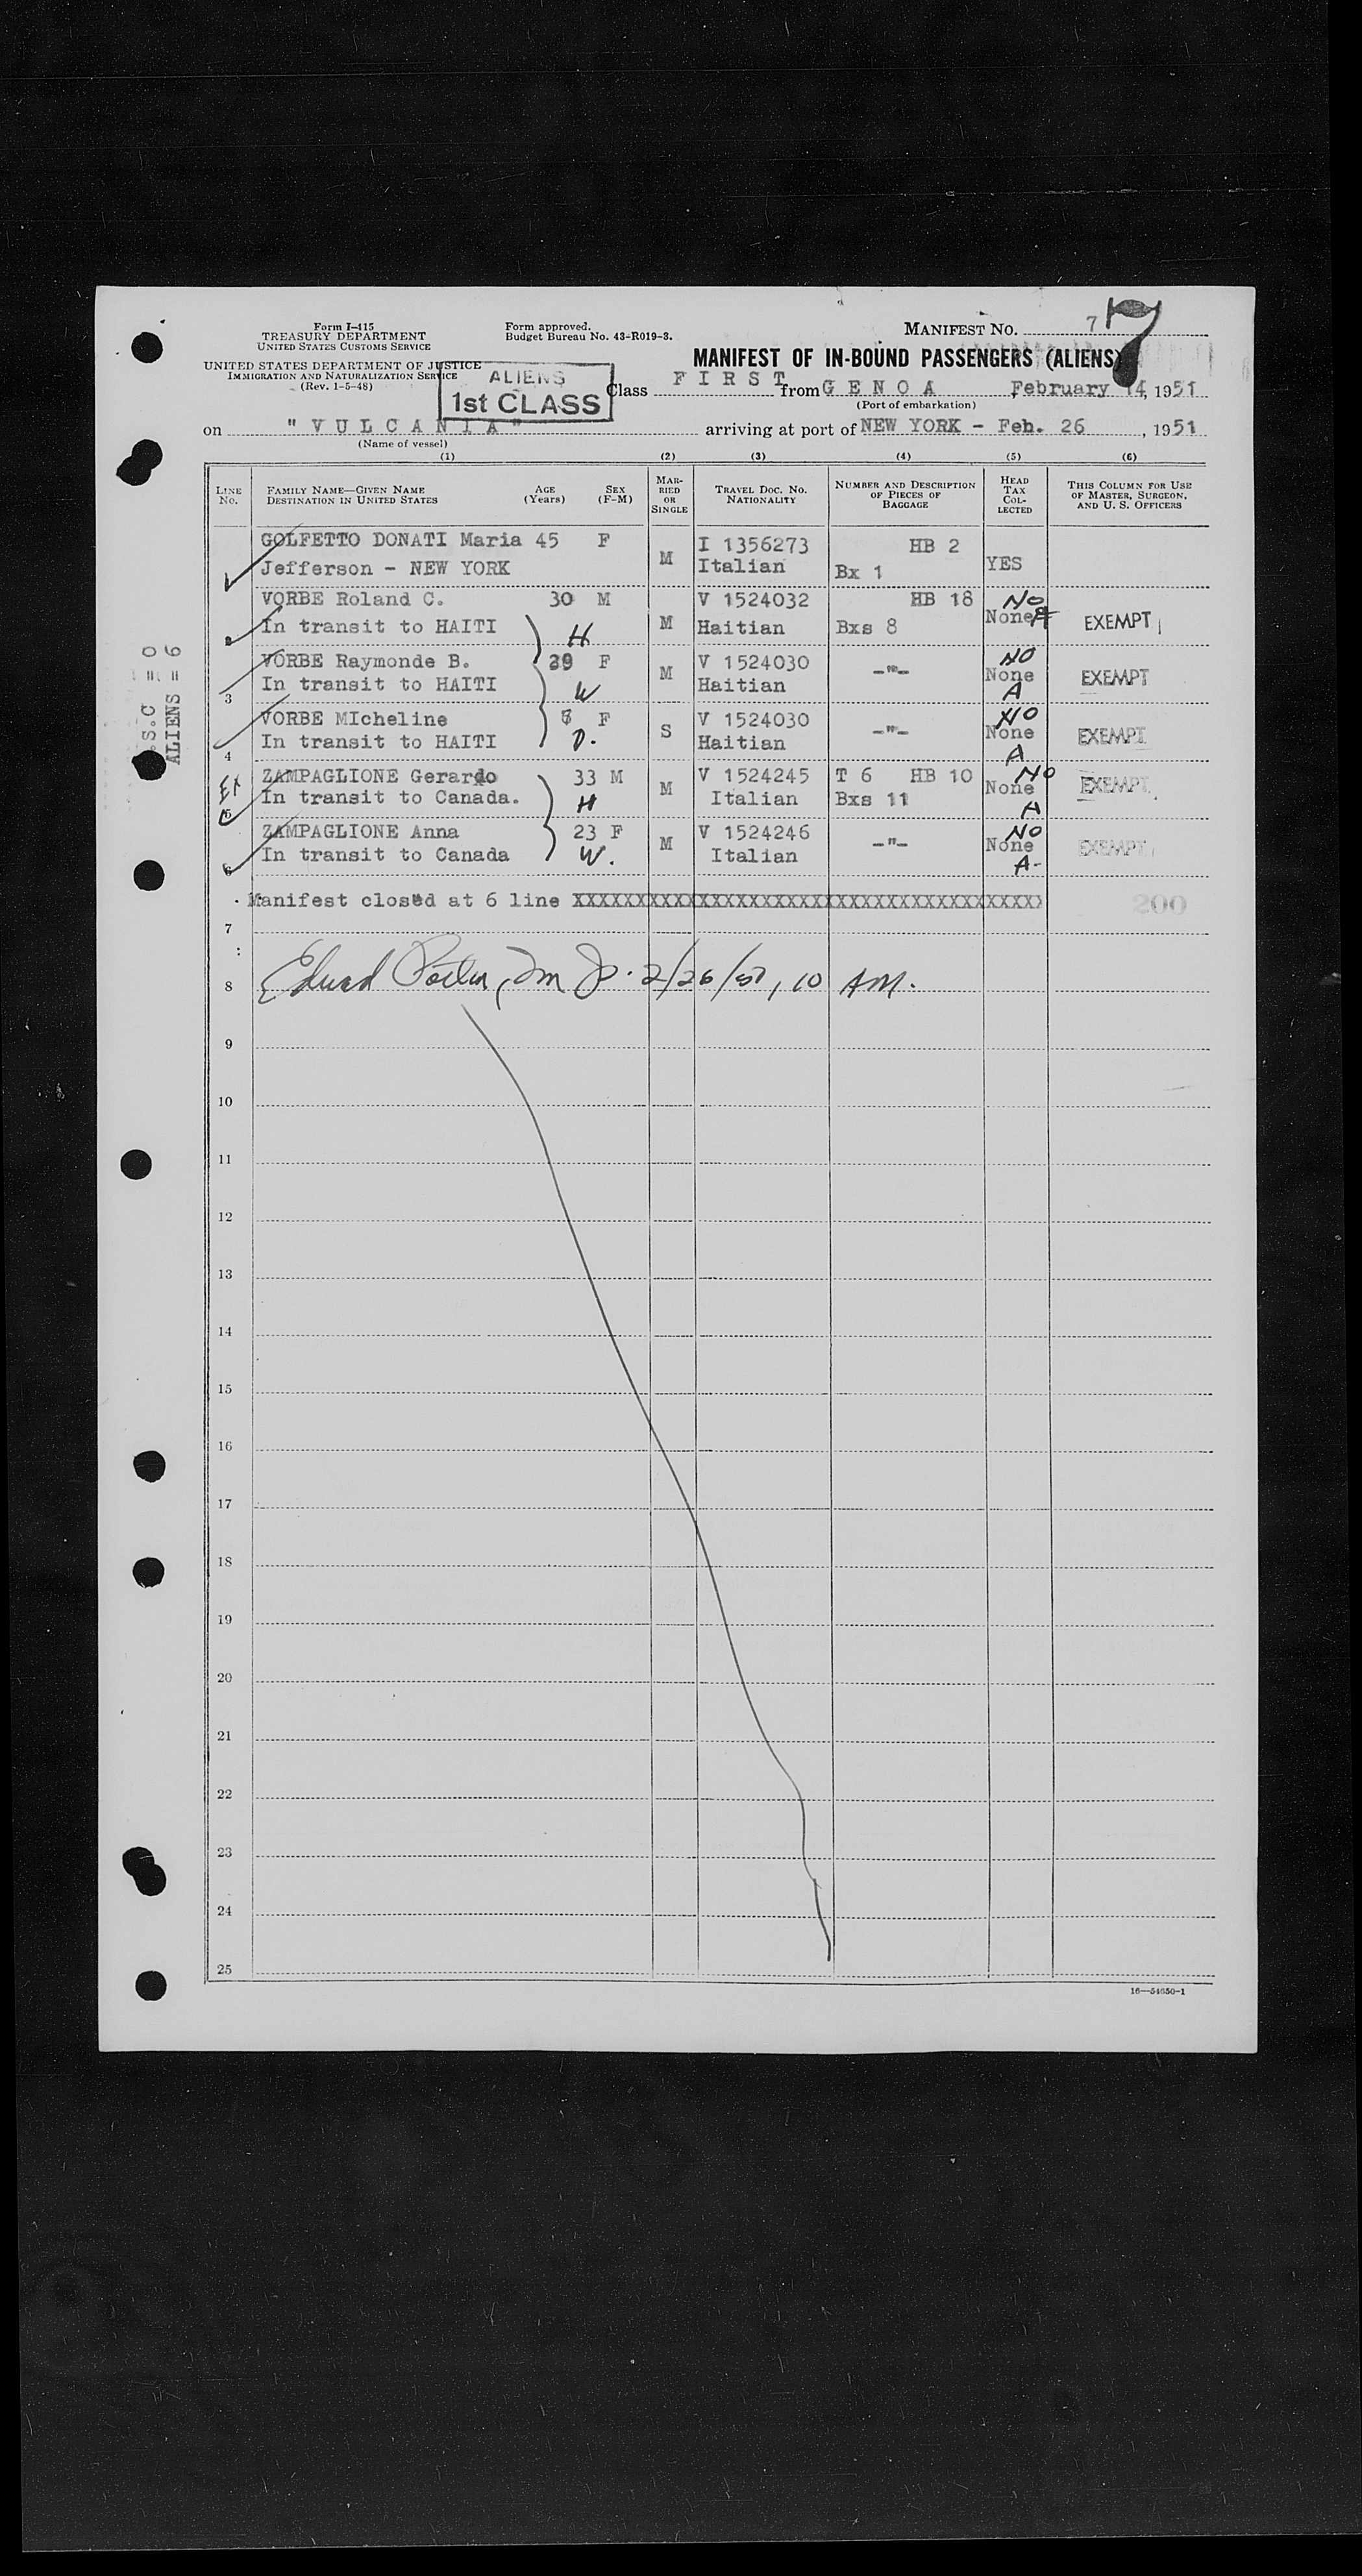 Form I-415
TREASURY DEPARTMENT
UNITED STATES CUSTOMS SERVICE
UNITED STATES DEPARTMENT OF JUSTICE
IMMIGRATION AND NATURALIZATION SERVICE
(Rev. 1-5-48)
Form approved.
Budget Bureau No. 43-R019-3.
MANIFEST NO. 7
7
MANIFEST OF IN-BOUND PASSENGERS (ALIENS)
ALIENS
1st CLASS
Class FIRST from GENOA February 14, 1951
(Port of embarkation)
on "VULCANIA" arriving at port of NEW YORK - Feb. 26, 1951
(Name of vessel)
(1) (2) (3) (4) (5) (6)
LINE NO.
FAMILY NAME—GIVEN NAME
DESTINATION IN UNITED STATES
AGE (Years)
SEX (F-M)
MARRIED OR SINGLE
TRAVEL DOC. NO.
NATIONALITY
NUMBER AND DESCRIPTION OF PIECES OF BAGGAGE
HEAD TAX COLLECTED
THIS COLUMN FOR USE OF MASTER, SURGEON, AND U. S. OFFICERS
GOLFETTO DONATI Maria 45 F M I 1356273 HB 2
1 Jefferson - NEW YORK Italian Bx 1 YES
VORBE Roland C. 30 M M V 1524032 HB 18 NO
2 In transit to HAITI H Haitian Bxs 8 None A EXEMPT
VORBE Raymonde B. 29 F M V 1524030 -"- NO
3 In transit to HAITI W Haitian None A EXEMPT
VORBE MIcheline F S V 1524030 -"- NO
4 In transit to HAITI D. Haitian None A EXEMPT
EX ZAMPAGLIONE Gerardo 33 M M V 1524245 T 6 HB 10 NO
5 In transit to Canada. H Italian Bxs 11 None A EXEMPT
ZAMPAGLIONE Anna 23 F M V 1524246 -"- NO
6 In transit to Canada W. Italian None A- EXEMPT
Manifest closed at 6 line XXXXXXXXXXXXXXXXXXXXXXXXXXXXXXXXXXXXXXX 200
7
8 2/26/51, 10 AM.
9
10
11
12
13
14
15
16
17
18
19
20
21
22
23
24
25
16—54650-1
.S.C = 0
ALIENS = 6